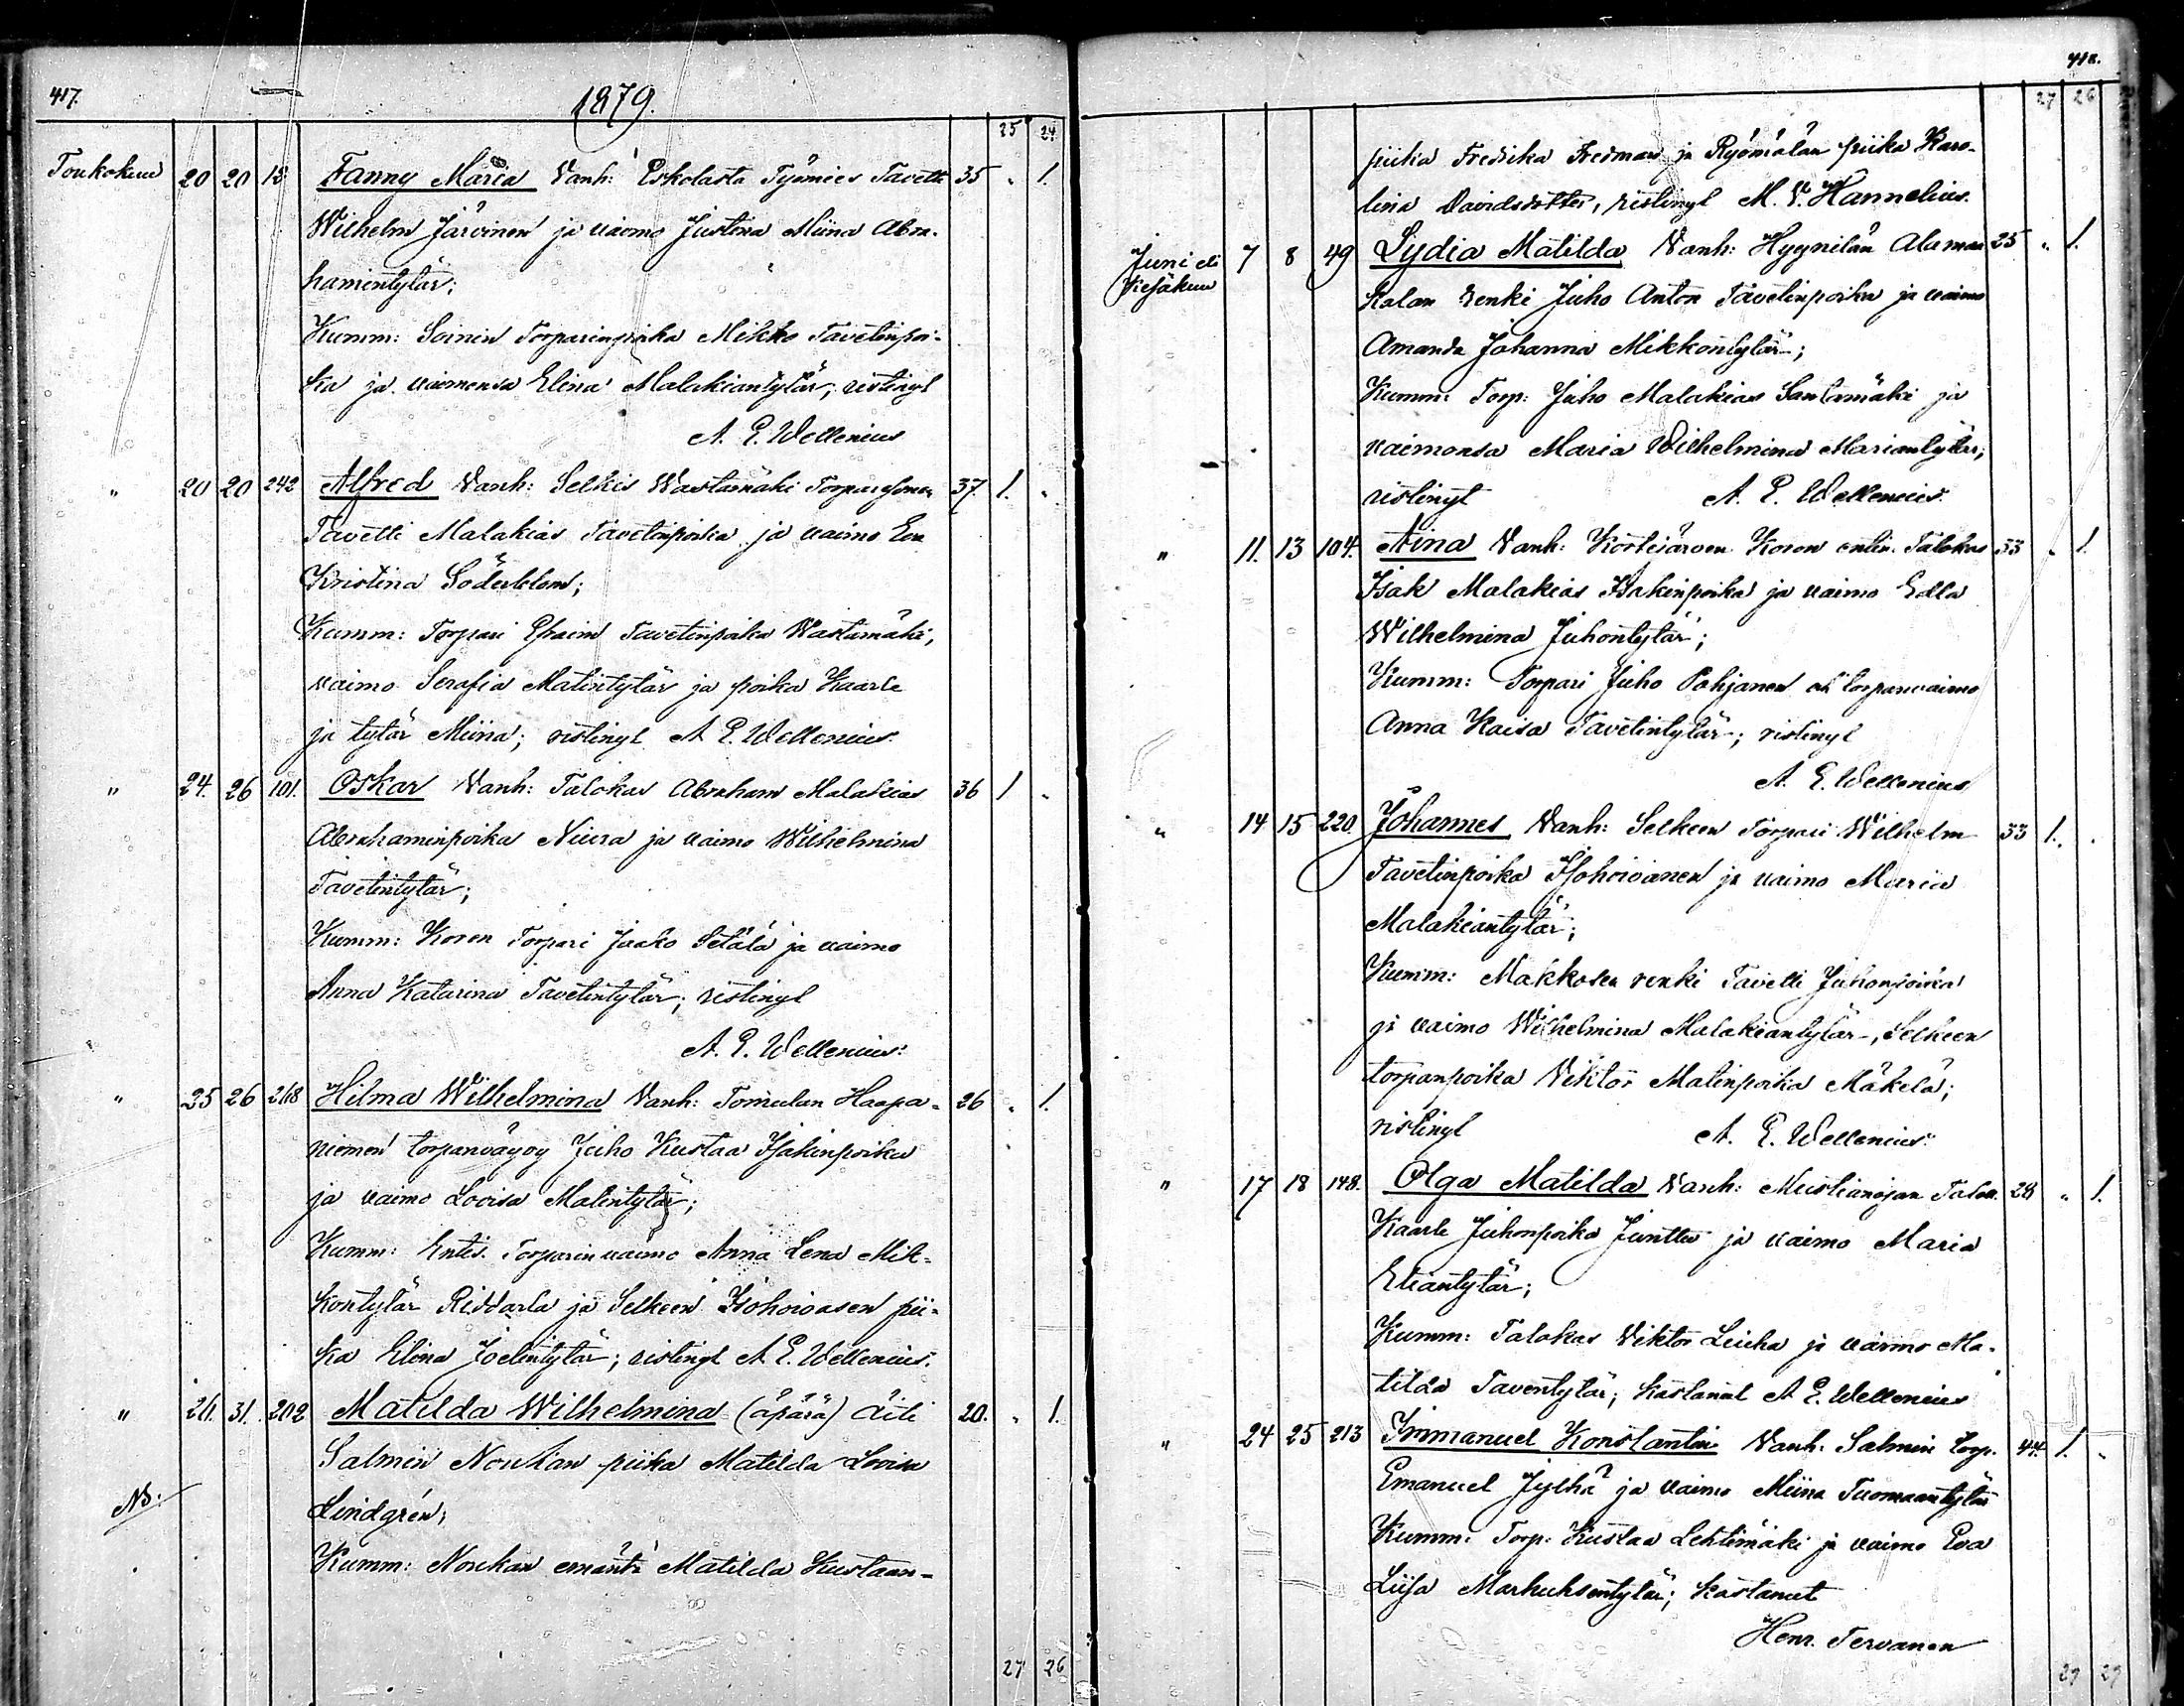 417.
1879.
25 24
Toukokuu 20 20 18 Fanny Maria Vanh: Eskolasta Työmies Tavetti 35 " 1.
Wilhelm Järvinen ja vaimo Justina Miina Abra-
hamintytär;
Kumm: Soinin Torparinpoika Mikko Tavetinpoi-
ka ja vaimonsa Elina Malakiantytär; ristinyt
A. E. Wellenius
" 20 20 242 Alfred Vanh: Selkis Wastamäki 37 1. "
Tavetti Malakias Tavetinpoika ja vaimo Eva
Kristina Söderblom;
Kumm: Torpari Efraim Tavetinpoika Wastamäki,
vaimo Serafia Matintytär ja poika Kaarle
ja tytär Miina; ristinyt A E. Wellenius.
" 24. 26 101. Oskar Vanh: Talokas Abraham Malakias 36 1 "
Abrahaminpoika Niura ja vaimo Wilhelmina
Tavetintytär;
Kumm: Koren Torpari Jaako Setälä ja vaimo
Anna Katarina Tavetintytär; ristinyt
A. E. Wellenius.
" 25 26 268 Hilma Wilhelmina Vanh: Tomulan Haapa- 26 " 1.
niemen torpanvävyy Juho Kustaa Isakinpoika
ja vaimo Lovisa Matintytär;
Kumm: Entis. Torparin vaimo Anna Lena Mik-
kontytär Riddarla ja Selkeen Isohoivasen pii-
ka Elina Joelintytär; ristinyt A E. Wellenius.
" 26. 31. 202 Matilda Wilhelmina (äpärä) Äiti 20. " 1.
Salmin Noukan piika Matilda Lovisa
NB: Lindgrén;
Kumm: Noukan emäntä Matilda Kustaan-
27 26
418.
27 26
piika Fredika Fredman ja Ryömälän piika Karo-
lina Davidsdotter, ristinyt M. V. Hannelius.
Juni eli Kesäkuu 7 8 49 Lydia Matilda Vanh: Hyynilän Alaman 25 " 1.
kalan renki Juho Anton Tavetinpoika ja vaimo
Amanda Johanna Mikkontytär;
Kumm: Torp: Juho Malakias Santamäki ja
vaimonsa Maria Wilhelmina Mariantytär;
ristinyt A. E. Wellenius.
" 11. 13 104. Aina Vanh: Kortejärven Koren entin. Talokas 33 " 1.
Isak Malakias Isakinpoika ja vaimo Edla
Wilhelmina Juhontytär;
Kumm: Torpari Juho Pohjanen och torpanvaimo
Anna Kaisa Tavetintytär; ristinyt
A. E. Wellenius
" 14 15 220. Johannes Vanh: Selkeen Torpari Wilhelm 33 1. "
Tavetinpoika Isohoivanen ja vaimo Maria
Malakiantytär;
Kumm: Makkosen renki Tavetti Juhonpoika
ja vaimo Wilhelmina Malakiantytär, Selkeen
torpanpoika Viktor Matinpoika Mäkelä;
ristinyt A. E. Wellenius.
" 17 18 148. Olga Matilda Vanh: Mustianojan Talok. 28 " 1.
Kaarle Juhonpoika Junttu ja vaimo Maria
Eliantytär;
Kumm: Talokas Viktor Liuha ja vaimo Ma-
tilda Taventytär; kastanut A E. Wellenius
" 24 25 213 Immanuel Konstantin Vanh: Salmin torp. 44. 1. "
Emanuel Jylhä ja vaimo Miina Tuomaantytär
Kumm: Torp: Kustaa Lehtimäki ja vaimo Eva
Liisa Markuksentytär; kastanut
Henr. Tervanen
29 29